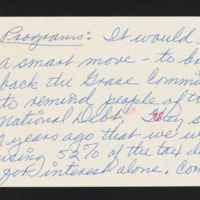 Programs: It would
a smart move - to b
back the Grace Commi
to remind people of t
National Debt. They s
years ago that we w
using 52% of the tax d
for interest alone. Con